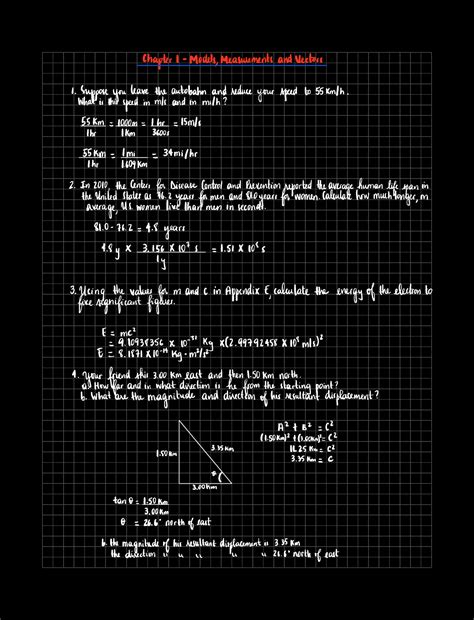 Chapter 1 - Models, Measurements and Vectors
1. Suppose you leave the autobahn and reduce your speed to 55 Km/h.
What is this speed in m/s and in mi/h?
55 Km = 1000m = 1 hr = 15m/s
1hr 1Km 3600s
55 Km = 1 mi = 34mi/hr
1hr 1.609 Km
2. In 2010, the Centers for Disease Control and Prevention reported the average human life span in
the United States as 76.2 years for men and 81.0 years for women. Calculate how much longer, on
average, U.S. women live than men in seconds.
81.0 - 76.2 = 4.8 years
4.8 y × 3.156 × 10⁷ s = 1.51 × 10⁸ s
1y
3. Using the values for m and c in Appendix E, calculate the energy of the electron to
five significant figures.
E = mc²
= 9.10938356 × 10⁻³¹ Kg × (2.99792458 × 10⁸ m/s)²
E = 8.1871 × 10⁻¹⁴ Kg · m²/s²
4. Your friend skis 3.00 Km east and then 1.50 Km north.
a) How far and in what direction is he from the starting point?
b. What are the magnitude and direction of his resultant displacement?
A² + B² = C²
(1.50Km)² + (3.00Km)² = C²
11.25 Km = C²
3.35 Km = C
1.50 Km
3.35 Km
θ
3.00 Km
tan θ = 1.50 Km
3.00 Km
θ = 26.6° north of east
b. the magnitude of his resultant displacement is 3.35 Km
the direction " " " " 26.6° north of east